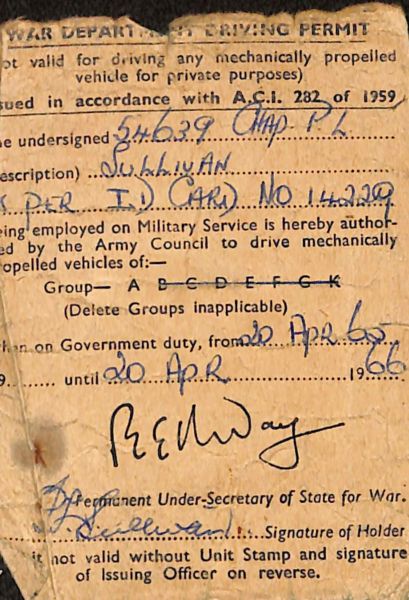 WAR DEPARTMENT DRIVING PERMIT
ot valid for driving any mechanically propelled
vehicle for private purposes)
sued in accordance with A.C.I. 282 of 1959
e undersigned 54639 CHAP. P. L.
escription) SULLIVAN
PER I.D CARD NO 142229
eing employed on Military Service is hereby author-
ed by the Army Council to drive mechanically
opelled vehicles of:—
Group— A B C D E F G K
(Delete Groups inapplicable)
hen on Government duty, from 20 APR 65
9........ until 20 APR 1966
Permanent Under-Secretary of State for War.
Sullivan Signature of Holder
it not valid without Unit Stamp and signature
of Issuing Officer on reverse.